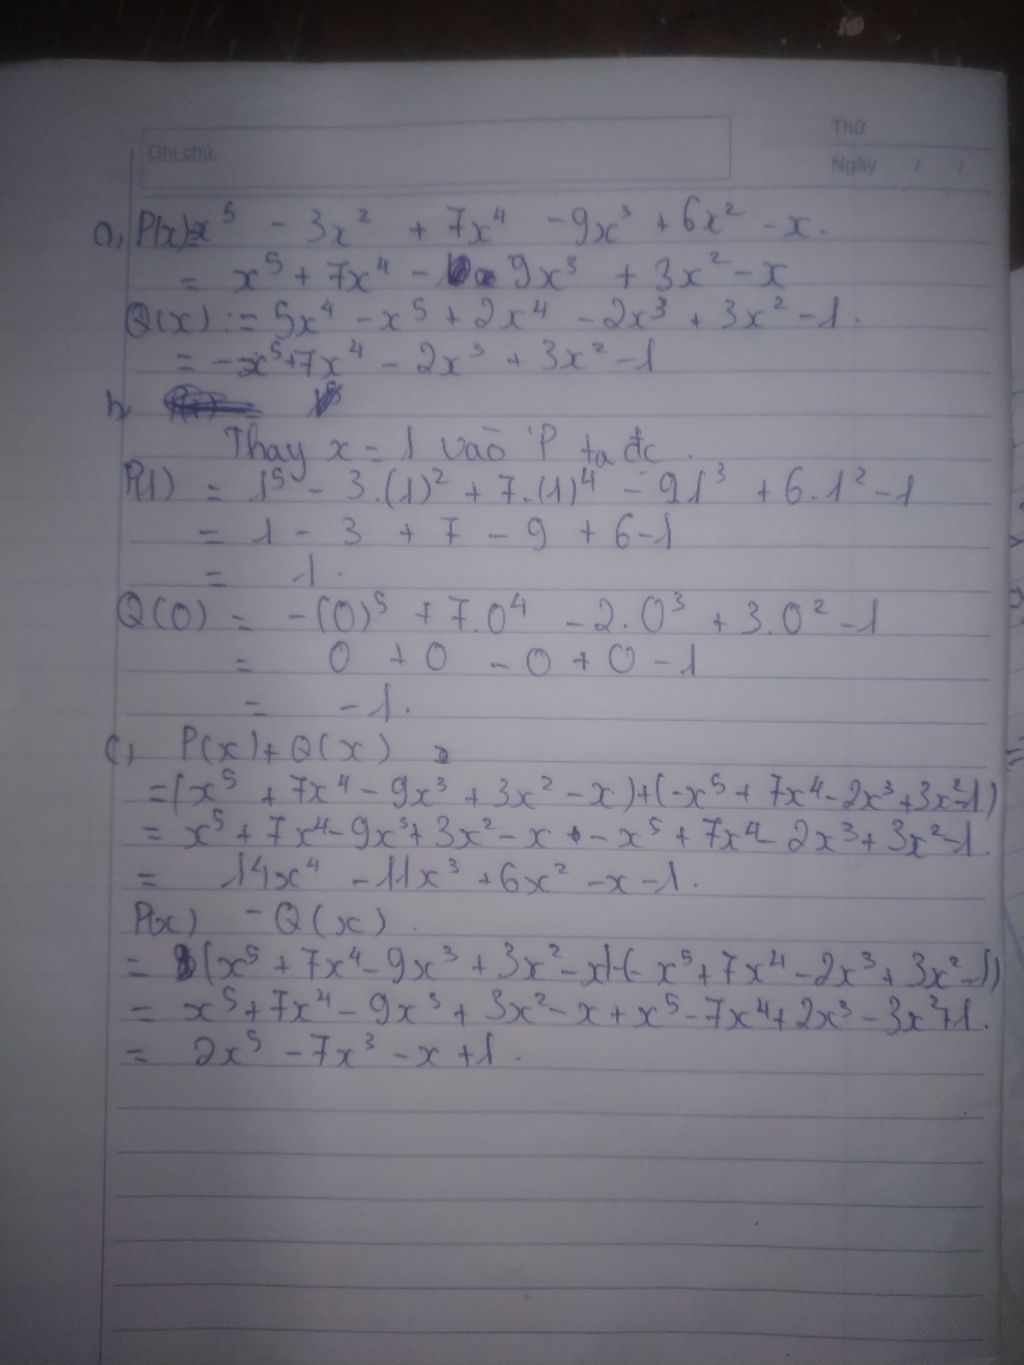 Ghi chú:
Thứ
Ngày / /
a, P(x)=x⁵ - 3x² + 7x⁴ - 9x³ + 6x² - x.
= x⁵ + 7x⁴ - 9x³ + 3x² - x
Q(x) := 5x⁴ - x⁵ + 2x⁴ - 2x³ + 3x² - 1.
= -x⁵ + 7x⁴ - 2x³ + 3x² - 1
b,
Thay x = 1 vào P ta đc.
P(1) = 1⁵ - 3.(1)² + 7.(1)⁴ - 9.1³ + 6.1² - 1
= 1 - 3 + 7 - 9 + 6 - 1
= 1.
Q(0) = -(0)⁵ + 7.0⁴ - 2.0³ + 3.0² - 1
= 0 + 0 - 0 + 0 - 1
= -1.
c, P(x) + Q(x)
= (x⁵ + 7x⁴ - 9x³ + 3x² - x) + (-x⁵ + 7x⁴ - 2x³ + 3x² - 1)
= x⁵ + 7x⁴ - 9x³ + 3x² - x - x⁵ + 7x⁴ - 2x³ + 3x² - 1.
= 14x⁴ - 11x³ + 6x² - x - 1.
P(x) - Q(x)
= (x⁵ + 7x⁴ - 9x³ + 3x² - x) - (-x⁵ + 7x⁴ - 2x³ + 3x² - 1)
= x⁵ + 7x⁴ - 9x³ + 3x² - x + x⁵ - 7x⁴ + 2x³ - 3x² + 1.
= 2x⁵ - 7x³ - x + 1.